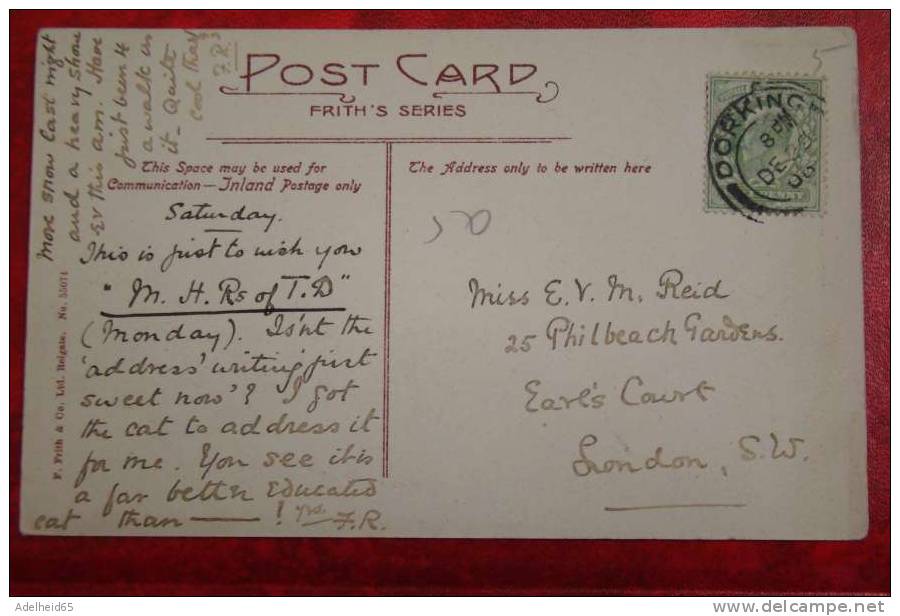 POST CARD
FRITH'S SERIES
This Space may be used for
Communication — Inland Postage only
The Address only to be written here
5
50
DORKING
8 PM
DE 29
06
PENNY
Saturday.
This is just to wish you
"M. H. Rs of T. D"
(Monday). Isn't the
'address' writing just
sweet now'? I got
the cat to address it
for me. You see it is
a far better educated
cat than —— ! yrs. F.R.
More snow last night
and a heavy show
er this a.m. Have
just been 4
a walk in
it – Quite
cool that
F.R.
Miss E. V. M. Reid
25 Philbeach Gardens.
Earl's Court
London, S.W.
F. Frith & Co. Ltd. Reigate. No. 55074
Adelheid65
www.delcampe.net